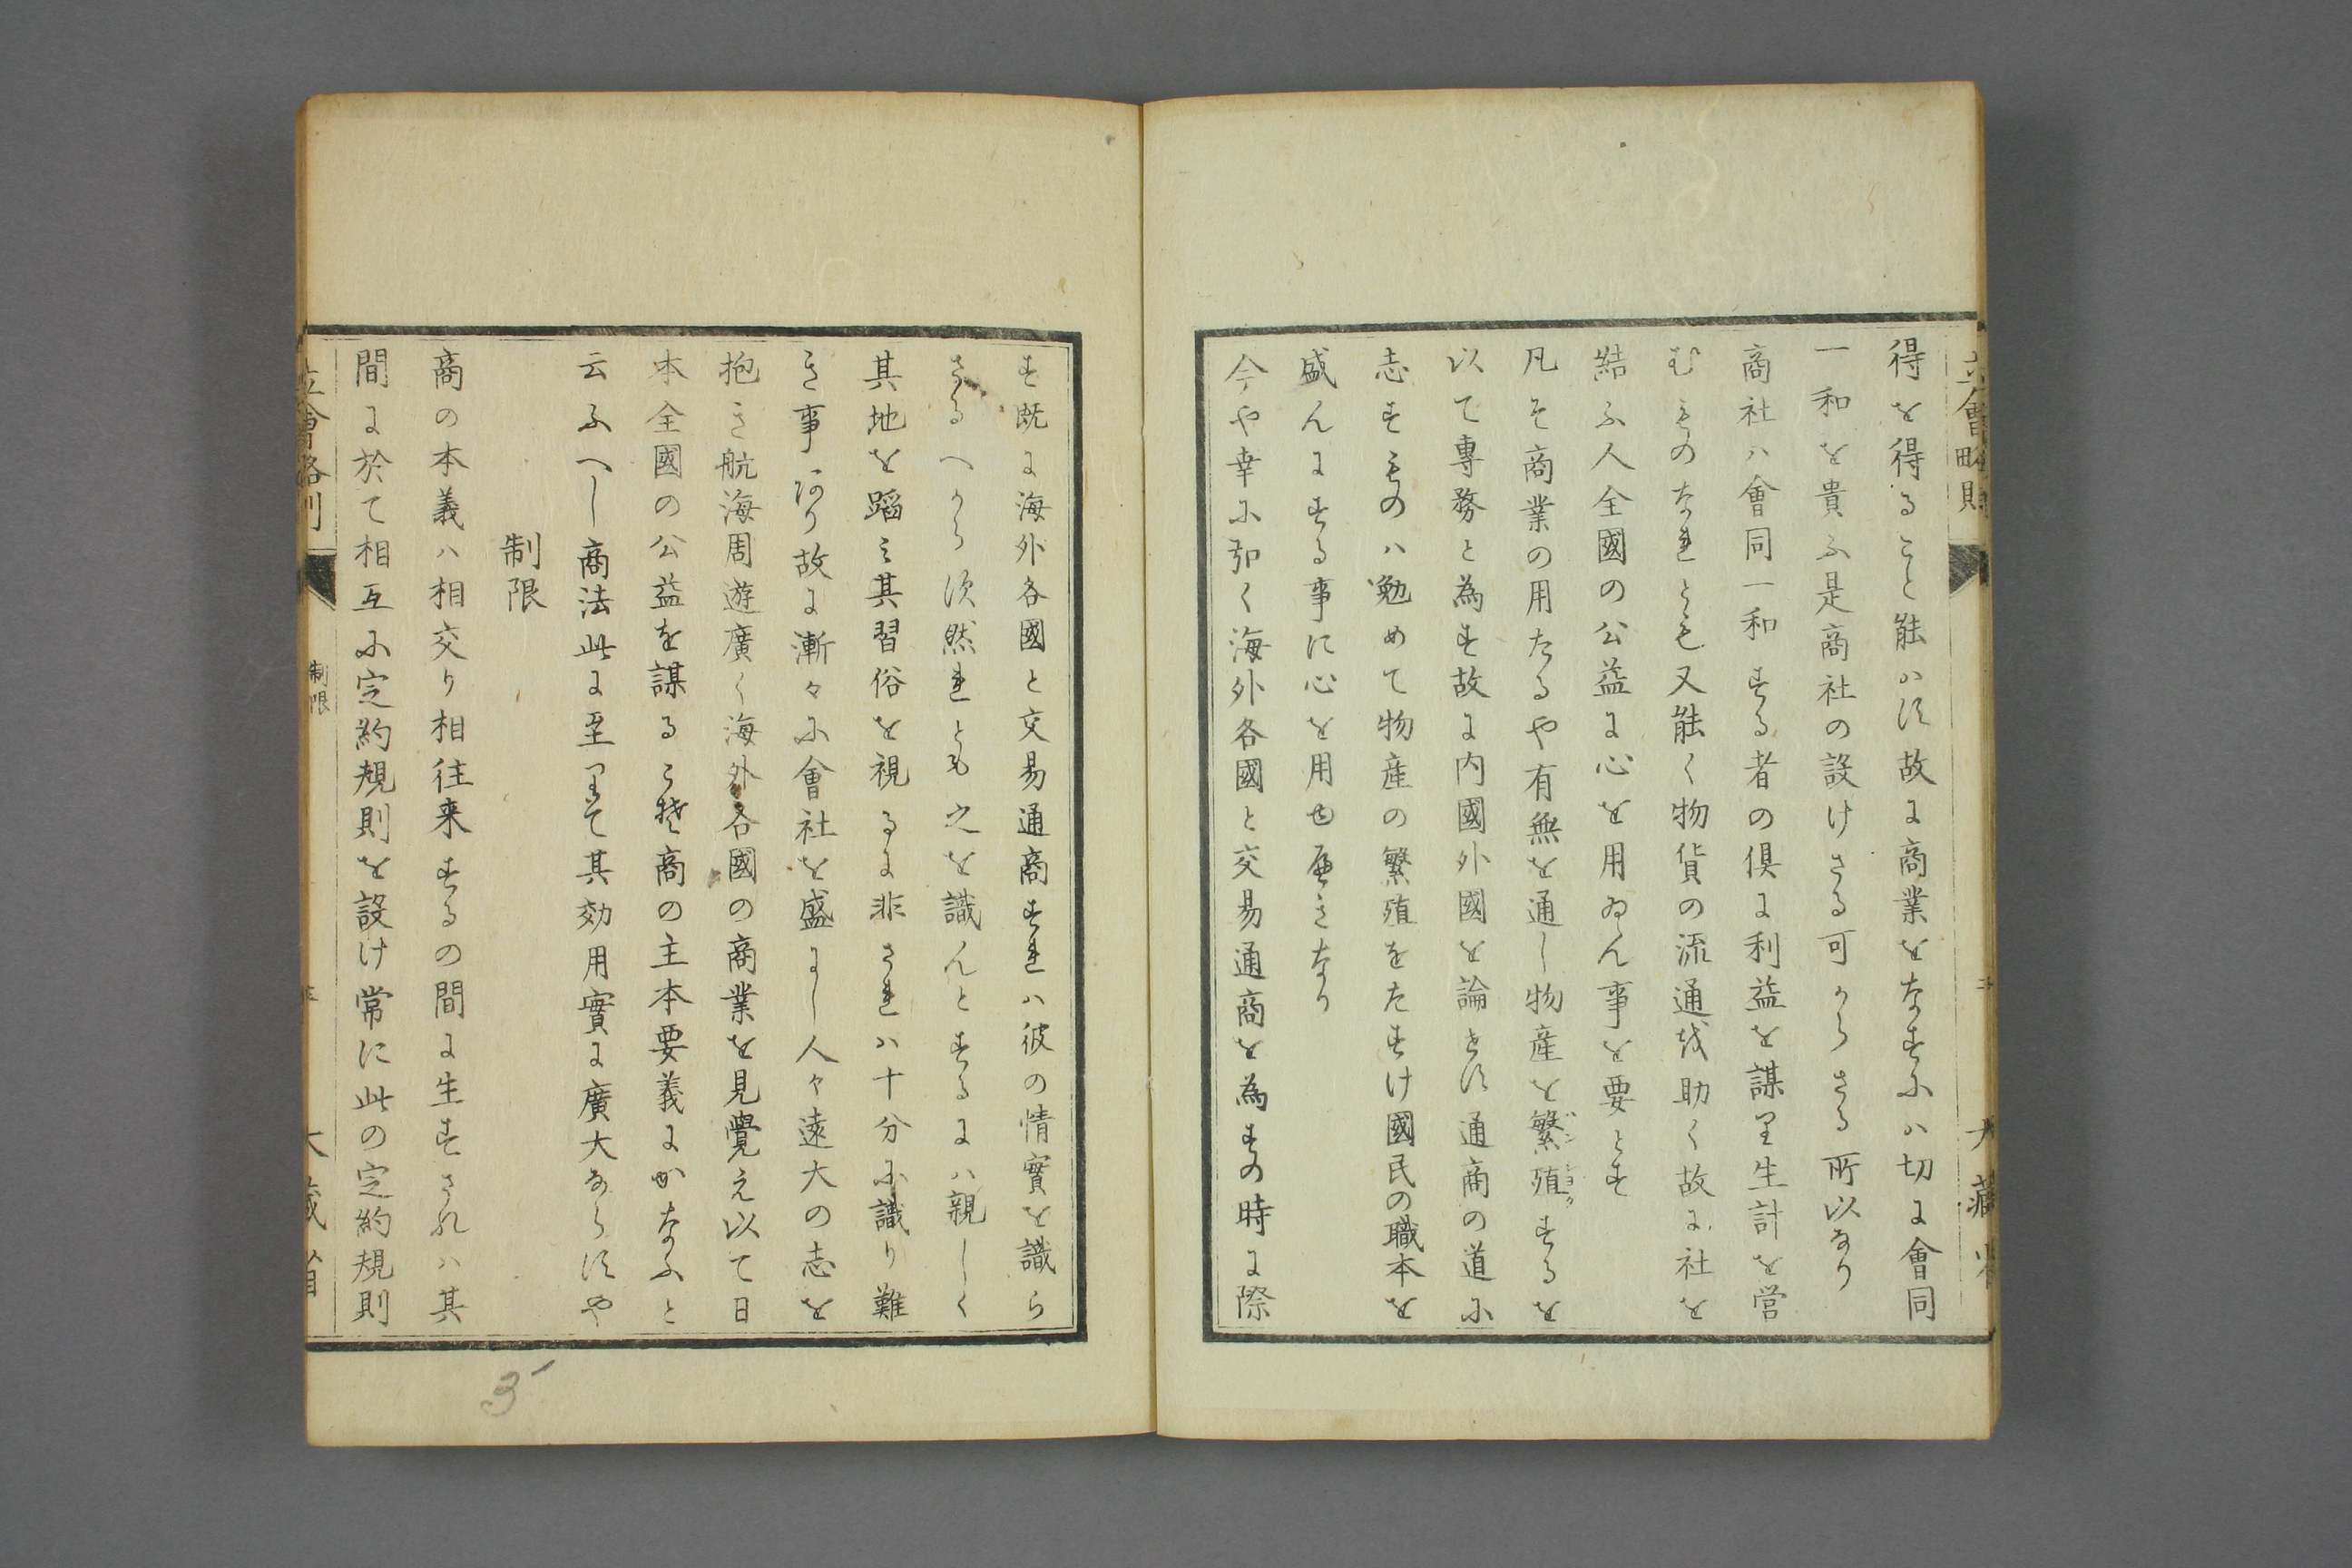 立會略則
大藏省
得を得ること能ハす故に商業をなすにハ切に會同
一和を貴ふ是商社の設けさる可からさる所以なり
商社ハ會同一和する者の倶に利益を謀り生計を営
むものなれとも又能く物貨の流通を助く故に社を
結ふ人全國の公益に心を用ゐん事を要とす
凡そ商業の用たるや有無を通し物産を繁殖するを
バンシヨク
以て專務と為す故に内國外國を論せす通商の道に
志すものハ勉めて物産の繁殖をたすけ國民の職本を
盛んにする事に心を用ゆ可きなり
今や幸に弘く海外各國と交易通商を為すの時に際
す既に海外各國と交易通商すれハ彼の情實を識ら
さるへからす然れとも之を識んとするにハ親しく
其地を蹈み其習俗を視るに非されハ十分に識り難
き事あり故に漸々に會社を盛にし人々遠大の志を
抱き航海周遊廣く海外各國の商業を見覺え以て日
本全國の公益を謀るこそ商の主本要義にかなふと
云ふへし商法此に至りて其効用實に廣大ならすや
制限
商の本義ハ相交り相往来するの間に生すされハ其
間に於て相互に定約規則を設け常に此の定約規則
立會略則
制限
大藏省
3